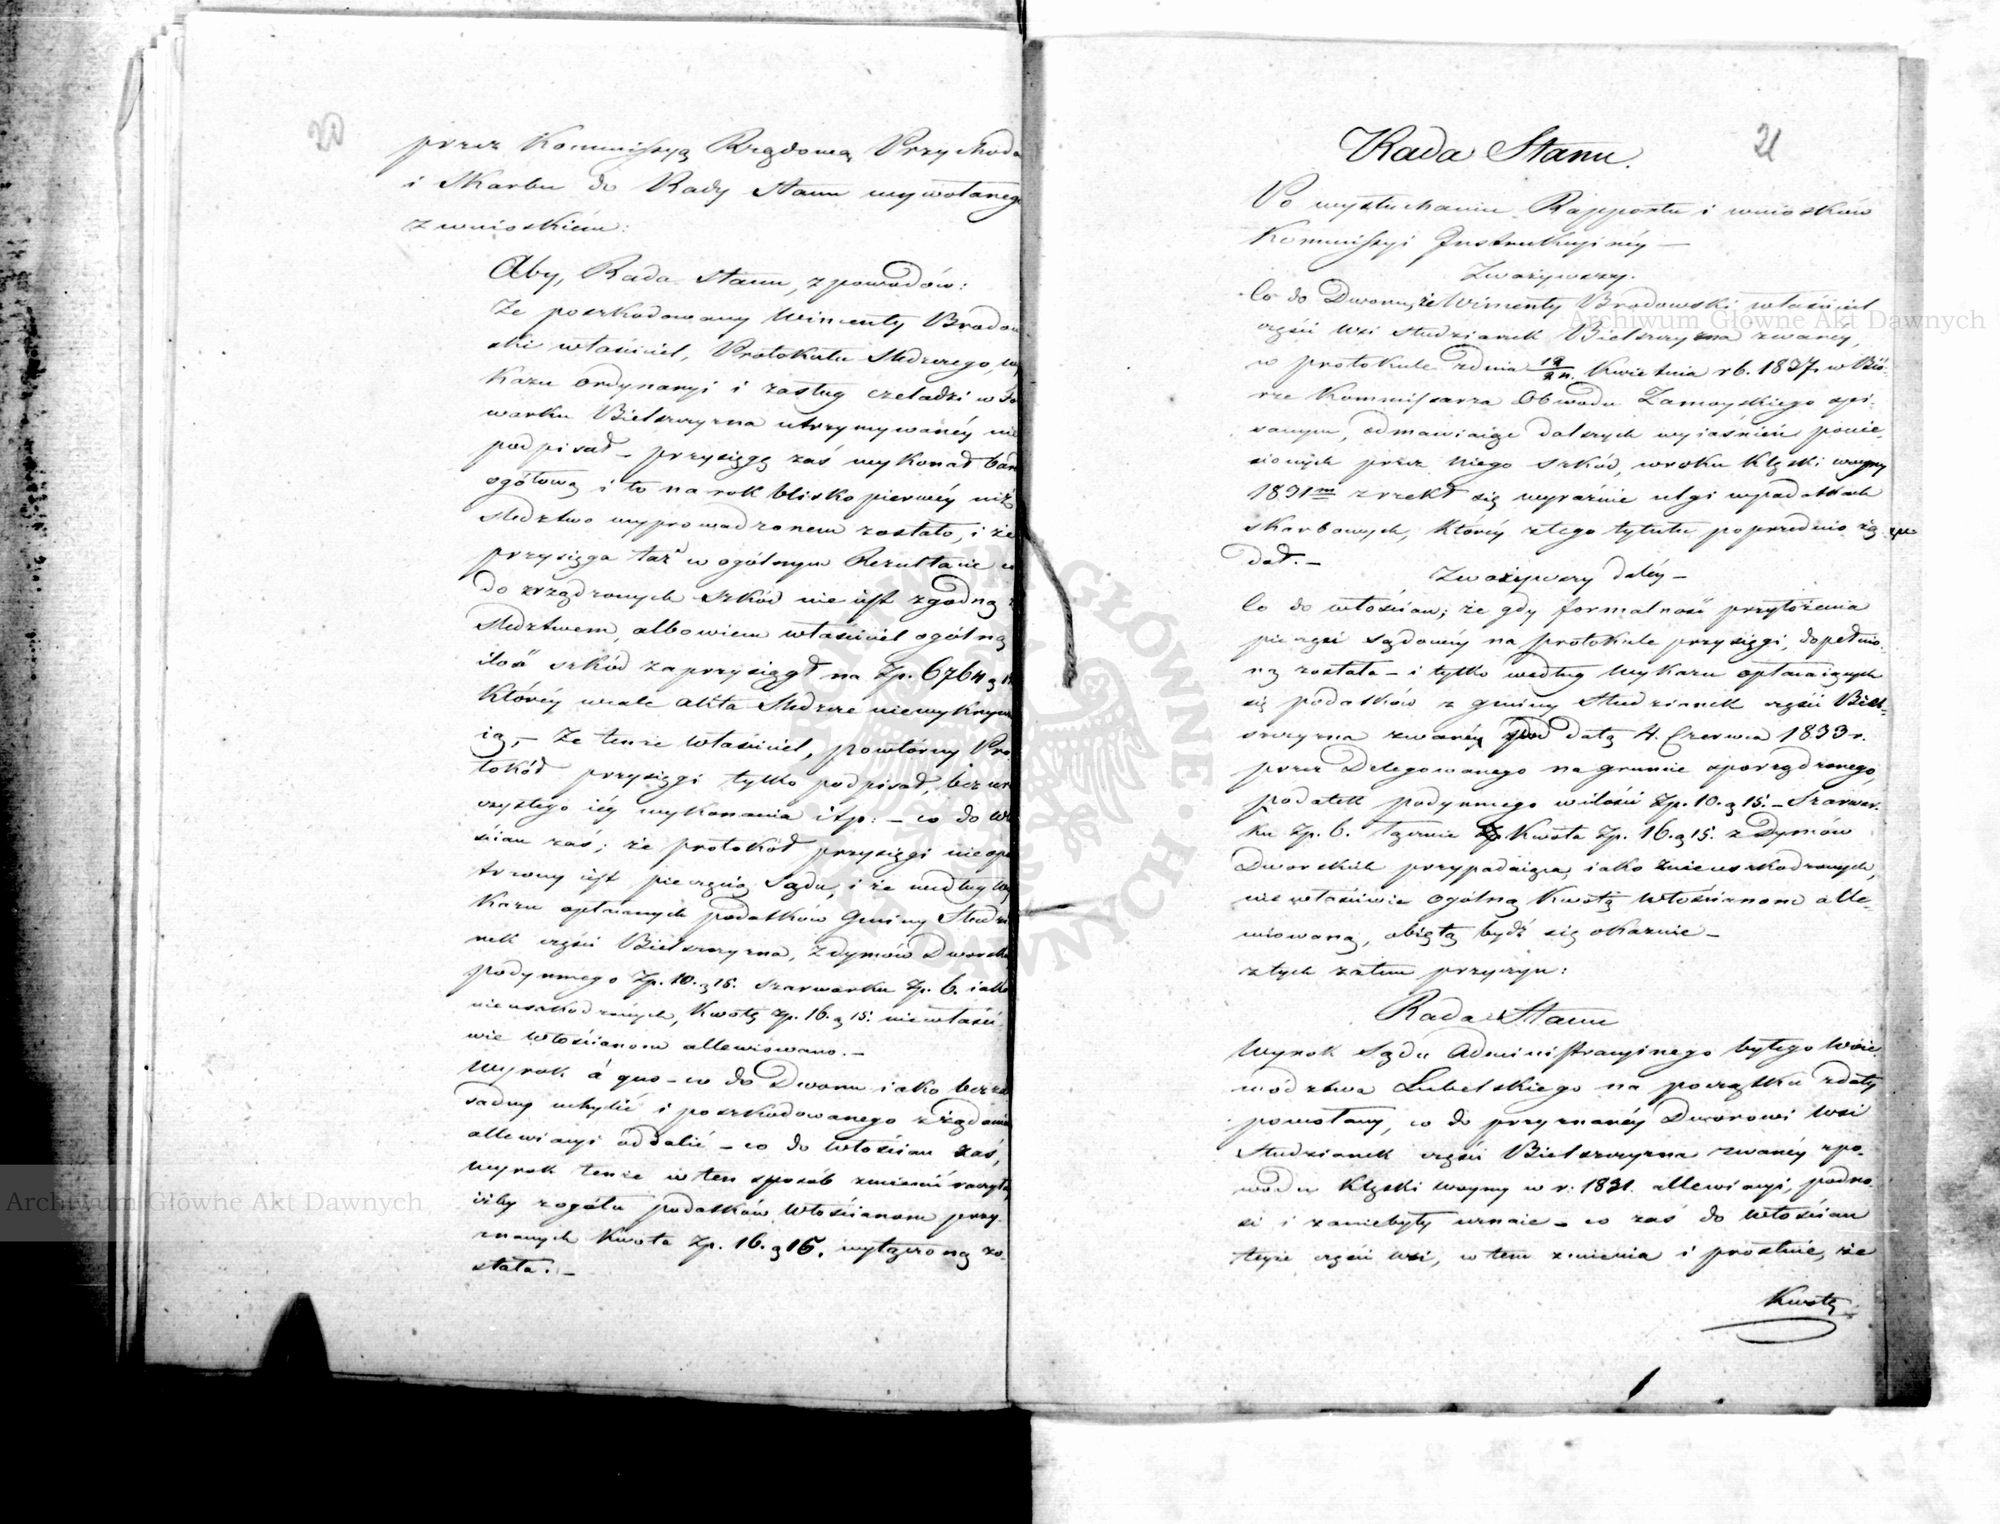 20
przez Kommissyą Rządową Przychodo
i Skarbu do Rady Stanu wywołanego
z wnioskiem:
Aby, Rada Stanu, z powodów:
Że poszkodowany Wincenty Brodow
ski właściciel, Protokułu Śledczego, wy
kazu ordynaryi i zasług czeladzi w fo
warku Bielszczyzna utrzymywanéy nie
podpisał – przysięgę zaś wykonał
ogółową i to na rok blisko pierwéy niż
śledztwo wyprowadzonem zostało, i że
przysięga taż w ogólnym Rezultacie co
do zrządzonych szkód nie iest zgodną z
śledztwem, albowiem właściciel ogólną
ilość szkód zaprzysiągł na Zp. 6764 g
któréy wcale akta śledcze niewykrywa
ią, – Że tenże właściciel, powtórny Pro
tokół przysięgi tylko podpisał, bez uro
czystego iéy wykonania itp: – co do Wło
ścian zaś; że protokół przysięgi nieopa
trzony iest pieczęcią Sądu, i że według Wy
kazu opłacanych podatków Gminy Studzia
nek części Bielszczyzna, z dymów Dworskich
podymnego Zp. 10. g 15. szarwarku Zp. 6. iako
nieuszkodzonych, kwotę Zp. 16. g 15. niewłaści
wie Włościanom allewiowano. –
Wyrok à quo – co do Dworu iako bezza
sadny uchylić i poszkodowanego z żądania
allewiacyi oddalić – co do Włościan zaś,
wyrok tenże w ten sposób zmienić raczyła
iżby z ogółu podatków Włościanom przy-
znanych kwota Zp. 16. g 15. wyłączoną zo-
stała. –
21
Rada Stanu.
Po wysłuchaniu Rapportu i wniosków
Kommissyi Instrukcyinéy –
Zważywszy.
Co do Dworu, że Wincenty Brodowski właściciel
części wsi Studzianek Bielszczyzna zwanéy,
w protokule z dnia Kwietnia r b. 1837. w Bió-
rze Kommissarza Obwodu Zamoyskiego spi-
sanym, odmawiaiąc dalszych wyiaśnień ponie-
sionych przez niego szkód, w roku klęski woyny
1831m zrzekł się wyraźnie ulgi w podatkach
skarbowych, któréy z tego tytułu poprzednio żą-
dał. –
Zważywszy daléy –
Co do włościan; że gdy formalność przyłożenia
pieczęci sądowéy na protokule przysięgi, dopełnio-
ną została – i tylko według Wykazu opłacaiących
się podatków z gminy Studzianek części Biel-
szczyzna zwanéy pod datą 4. Czerwca 1833 r.
przez Delegowanego na gruncie sporządzonego,
podatek podymnego w ilości Zp. 10. g 15. – Szarwar-
ku Zp. 6. łącznie kwota Zp. 16. g 15. z Dymów
Dworskich przypadaiąca, iako z nieuszkodzonych,
niewłaściwie ogólną kwotą Włościanom alle-
wiowaną, obiętą bydź się okazuie –
z tych zatem przyczyn:
Rada Stanu
Wyrok Sądu Administracyinego byłego Woie-
wództwa Lubelskiego na początku z daty
powołany, co do przyznanéy Dworowi wsi
Studzianek części Bielszczyzna zwanéy z po-
wodu klęski woyny w r: 1831. allewiacyi, podno-
si i za niebyły uznaie – co zaś do Włościan
teyże części wsi, w tem zmienia i prostuie, że
kwotę
Archiwum Główne Akt Dawnych
Archiwum Główne Akt Dawnych
ARCHIWUM GŁÓWNE AKT DAWNYCH · W WARSZAWIE ·